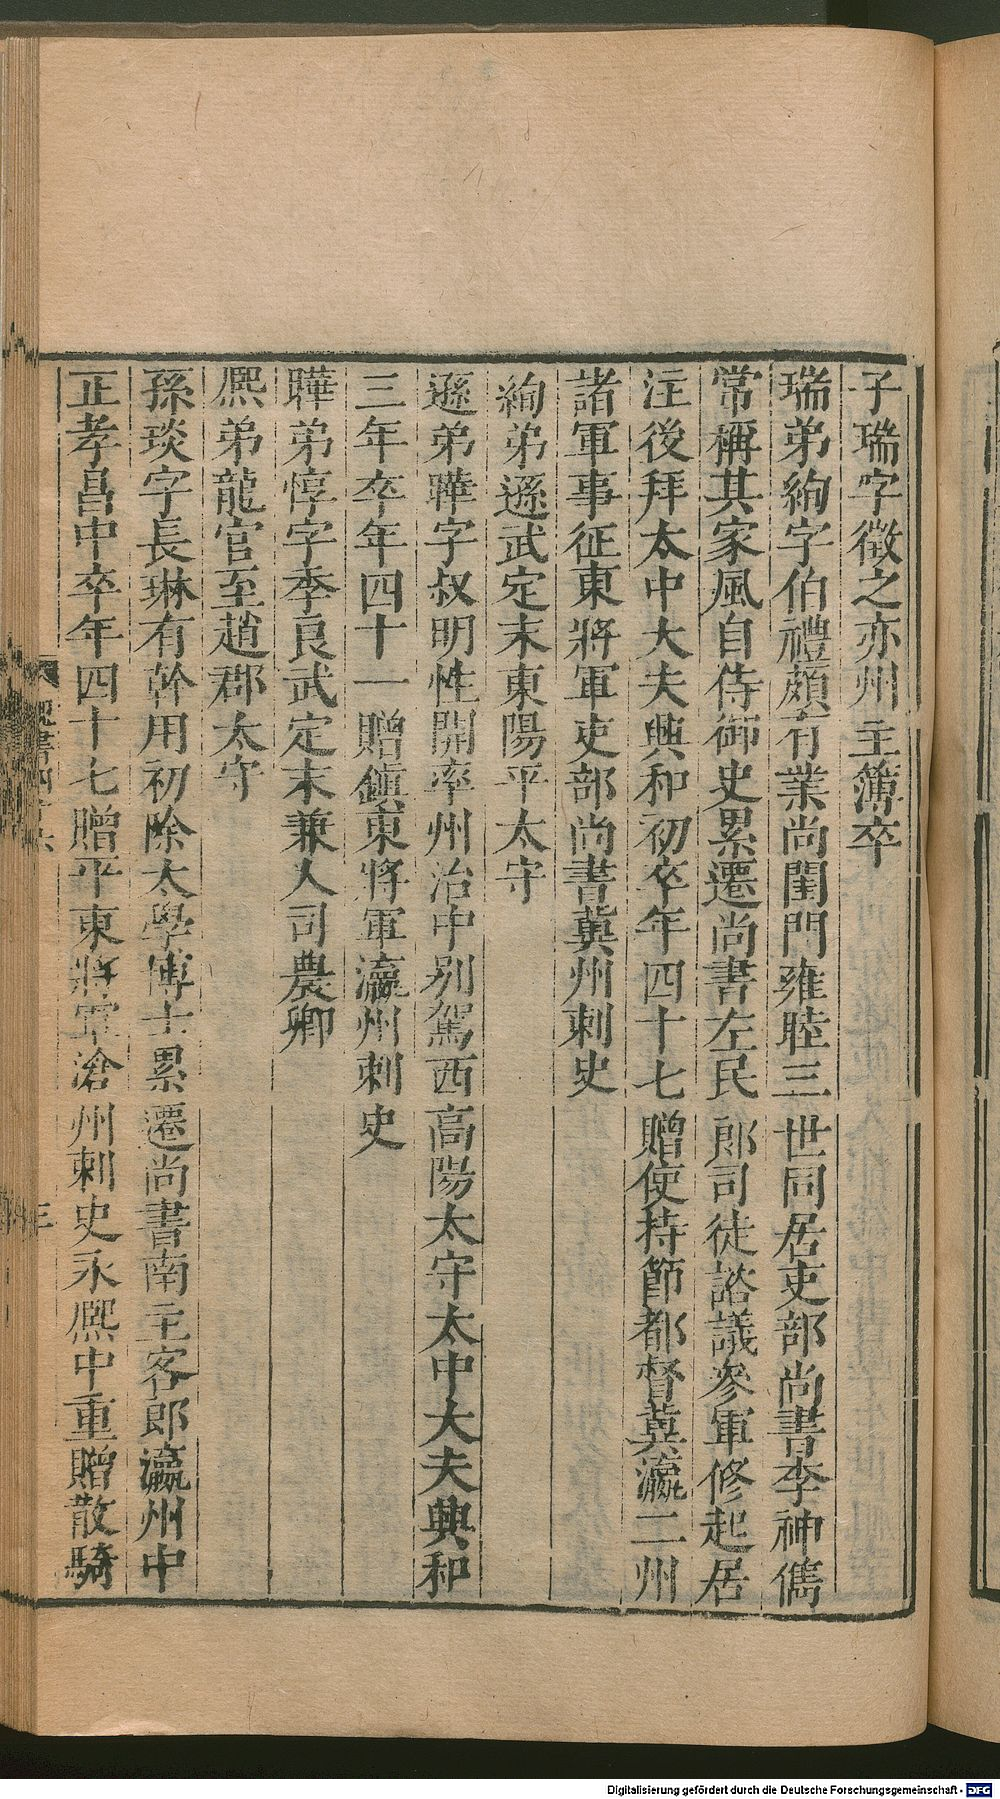 子瑞字徵之亦州主簿卒
瑞弟絢字伯禮頗有業尚閨門雍睦三世同居吏部尚書李神儁
常稱其家風自侍御史累遷尚書左民郎司徒諮議參軍修起居
注後拜太中大夫興和初卒年四十七贈使持節都督冀瀛二州
諸軍事征東將軍吏部尚書冀州刺史
絢弟遜武定末東陽平太守
遜弟曄字叔明性開率州治中別駕西高陽太守太中大夫興和
三年卒年四十一贈鎮東將軍瀛州刺史
曄弟惇字季良武定末兼人司農卿
熈弟龍官至趙郡太守
孫琰字長琳有幹用初除太學博士累遷尚書南主客郎瀛州中
正孝昌中卒年四十七贈平東將軍滄州刺史永熈中重贈散騎
魏書四十六
三
Digitalisierung gefördert durch die Deutsche Forschungsgemeinschaft - DFG